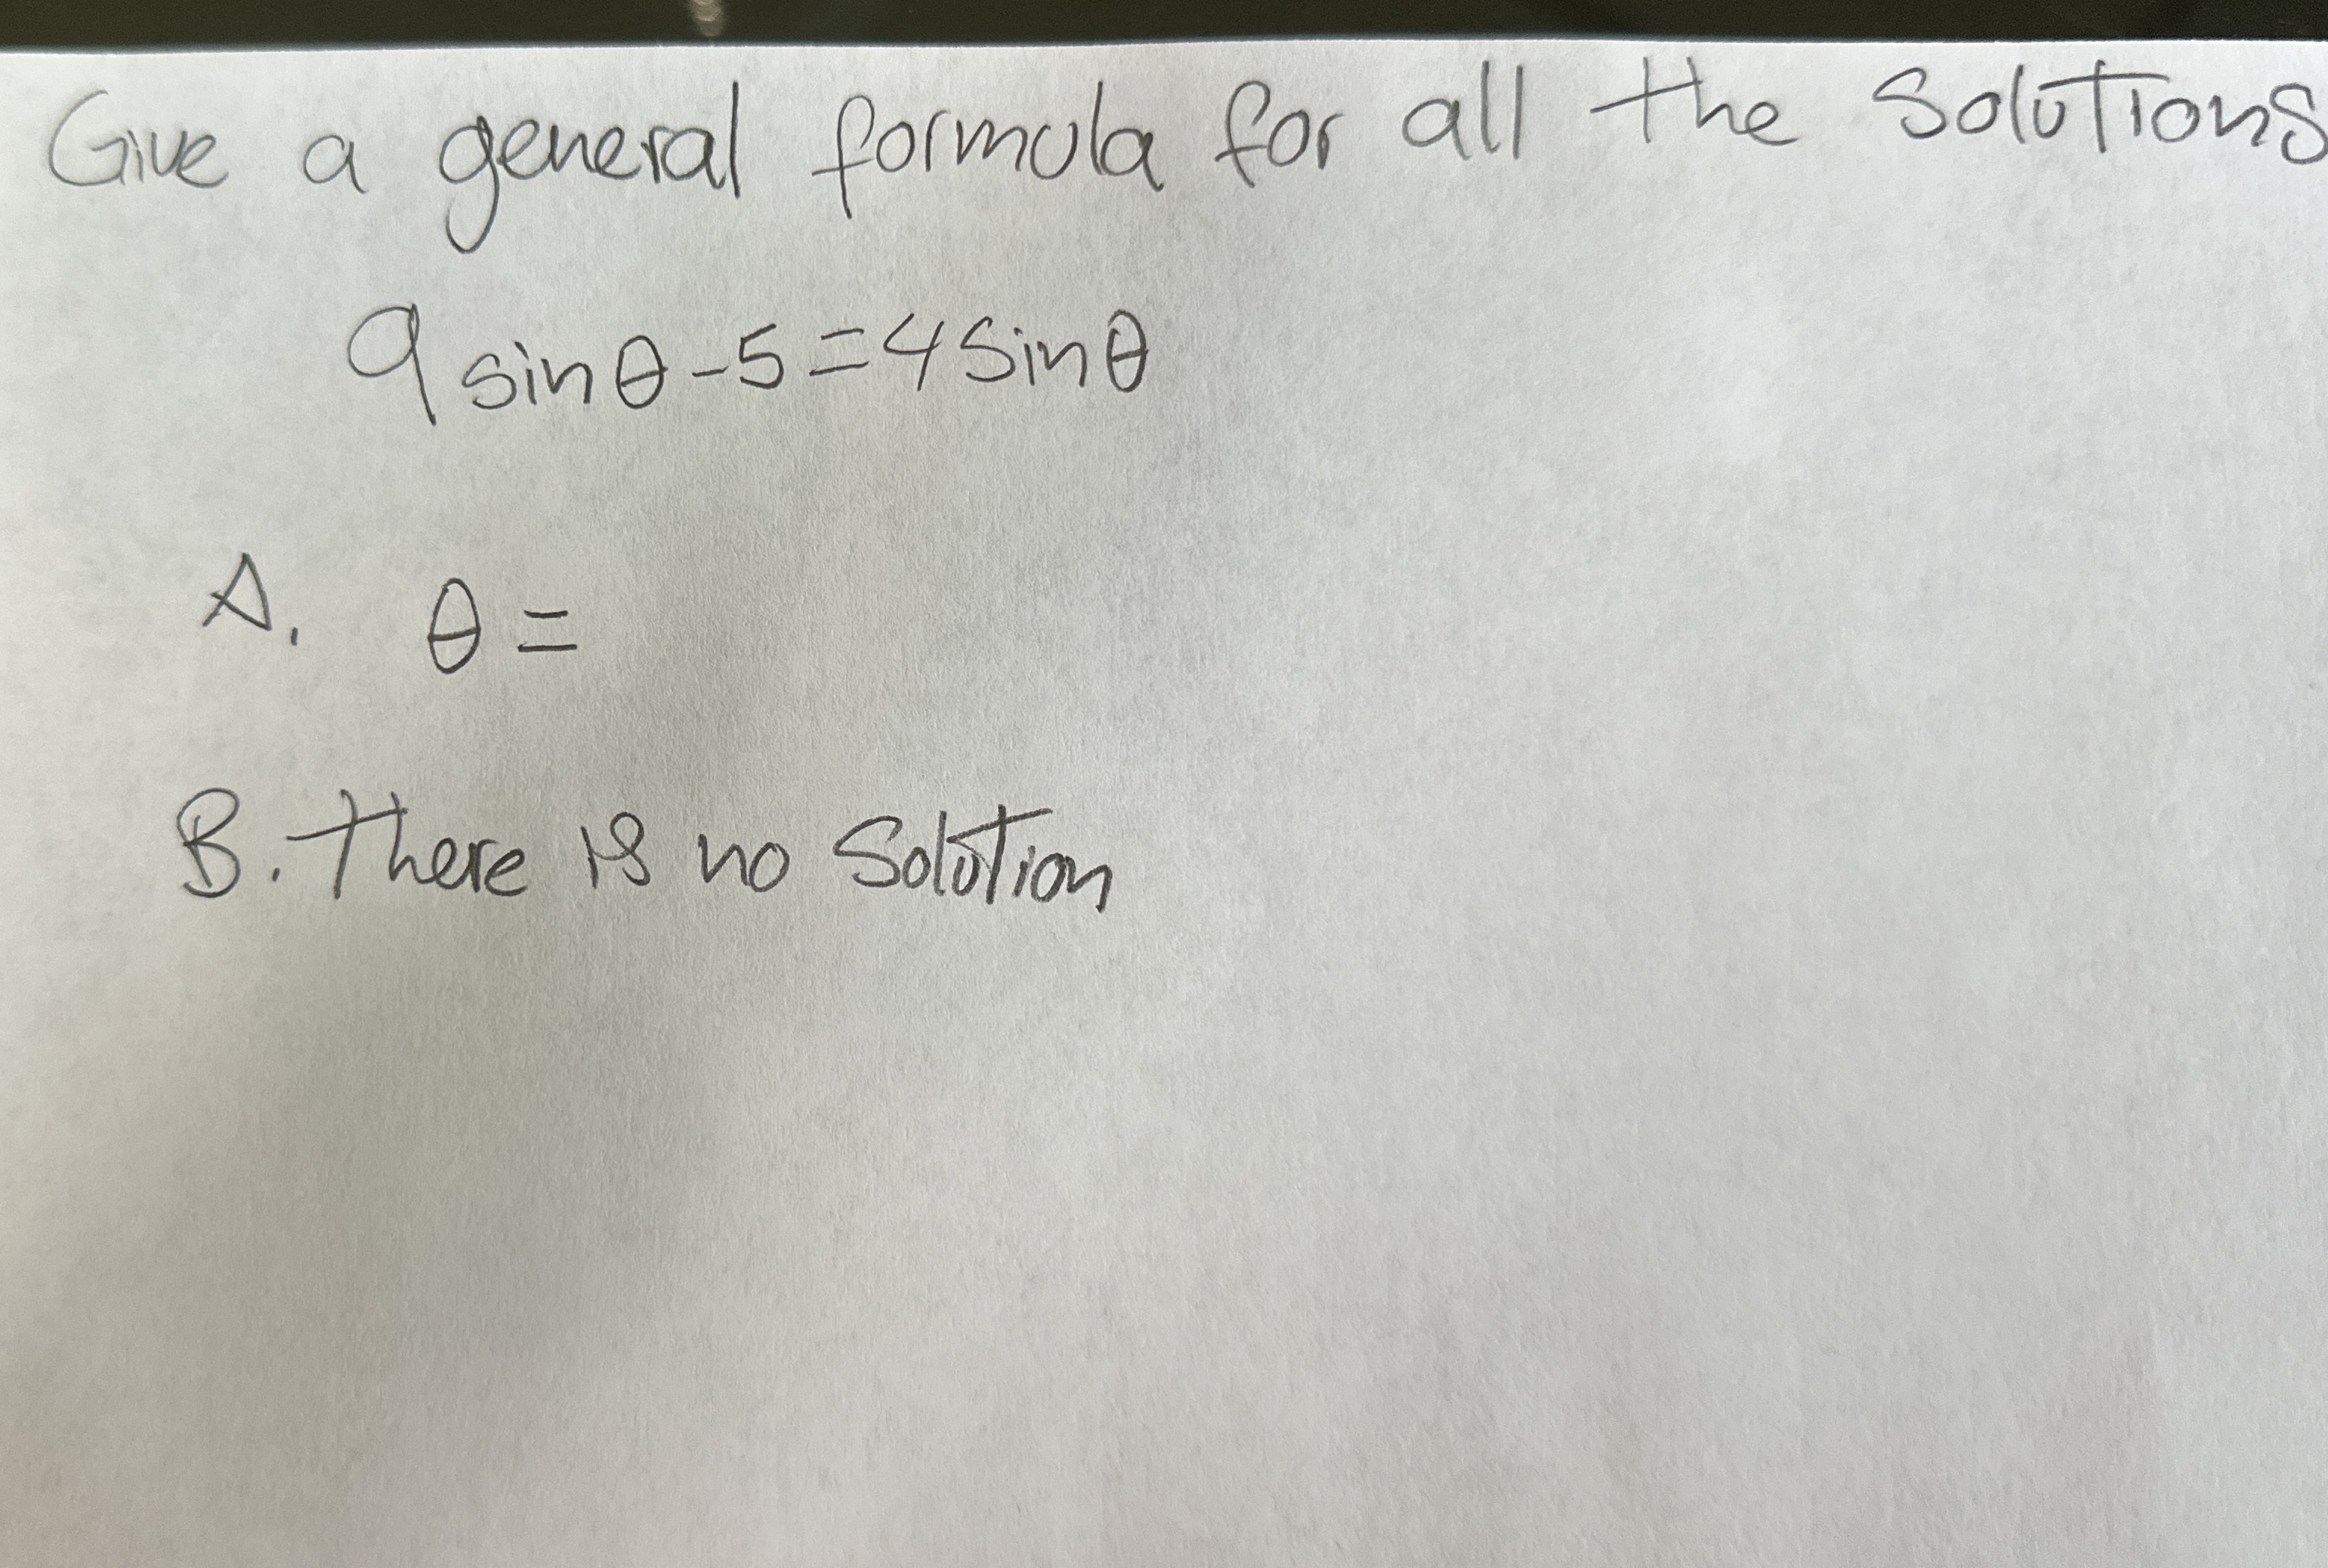 Give a general formula for all the solutions
9 sin θ - 5 = 4 sin θ
A. θ =
B. There is no solution